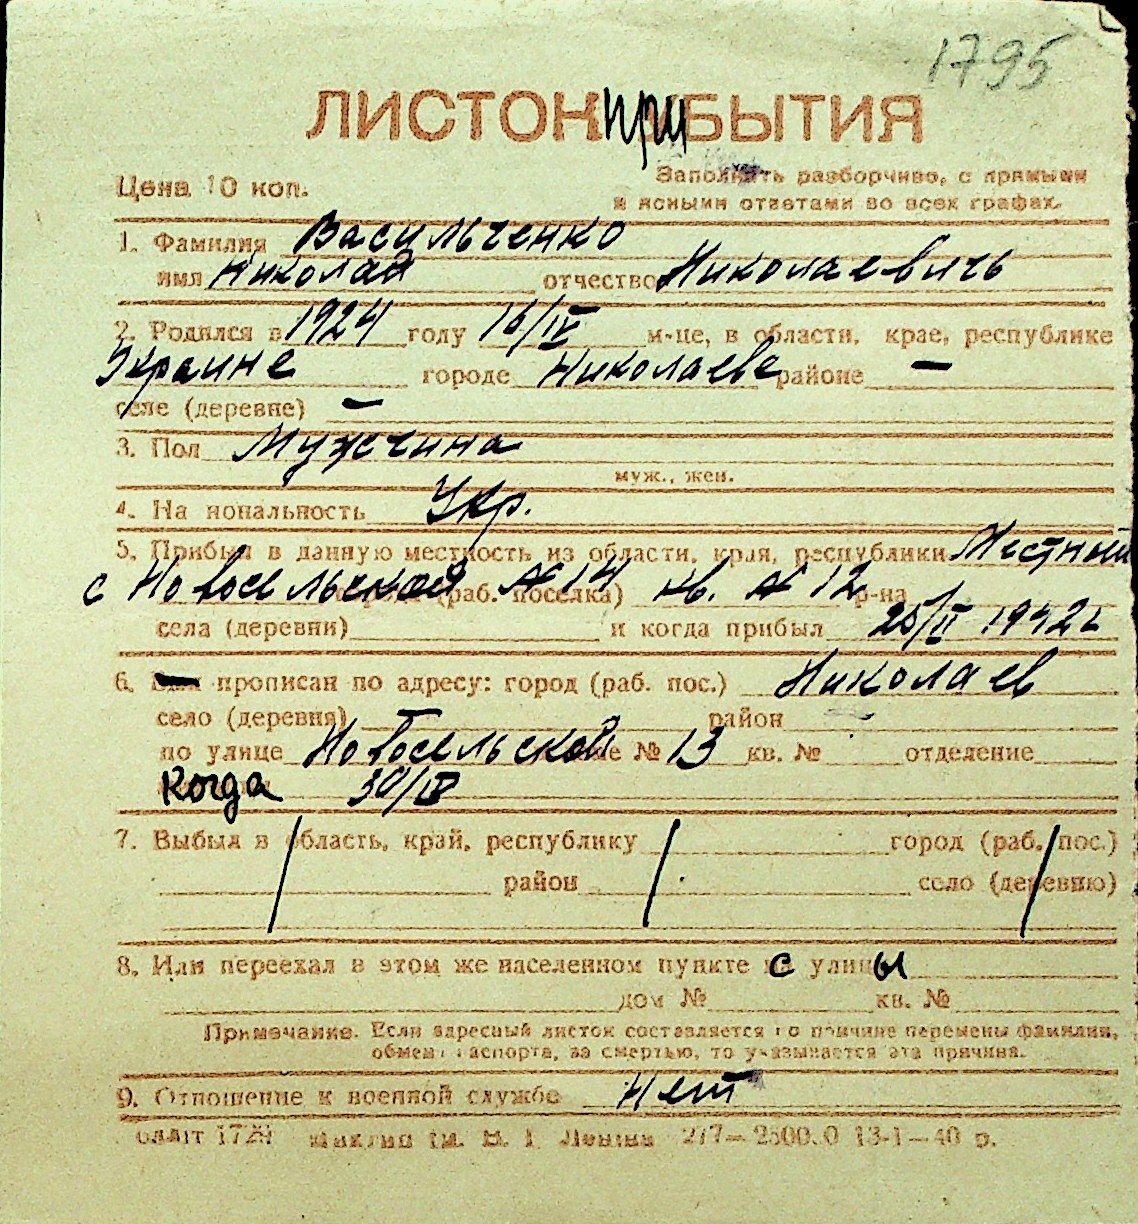 1795
ЛИСТОК прибытия
Цена 10 коп.
Заполнять разборчиво, с прямыми
и ясными ответами во всех графах.
1. Фамилия Васильченко
имя Николай отчество Николаевичь
2. Родился в 1924 году 16/IV м-це, в области, крае, республике
Украине городе Николаеве районе —
селе (деревне) —
3. Пол Мужчина
муж., жен.
4. Национальность Укр.
5. Прибыл в данную местность из области, края, республики Местный
с Новосельской № 14 (раб. поселка) кв. № 12 р-на
села (деревни) и когда прибыл 1942 г
6. прописан по адресу: город (раб. пос.) Николаев
село (деревня) — район —
по улице Новосельской № 13 кв. № отделение
Когда 30/IV
7. Выбыл в область, край, республику город (раб. пос.)
район село (деревню)
8. Или переехал в этом же населенном пункте с улицы
дом № кв. №
Примечание. Если адресный листок составляется по причине перемены фамилии,
обмена паспорта, за смертью, то указывается эта причина.
9. Отношение к военной службе Нет
Ленина 277—2500.0 13-1—40 р.